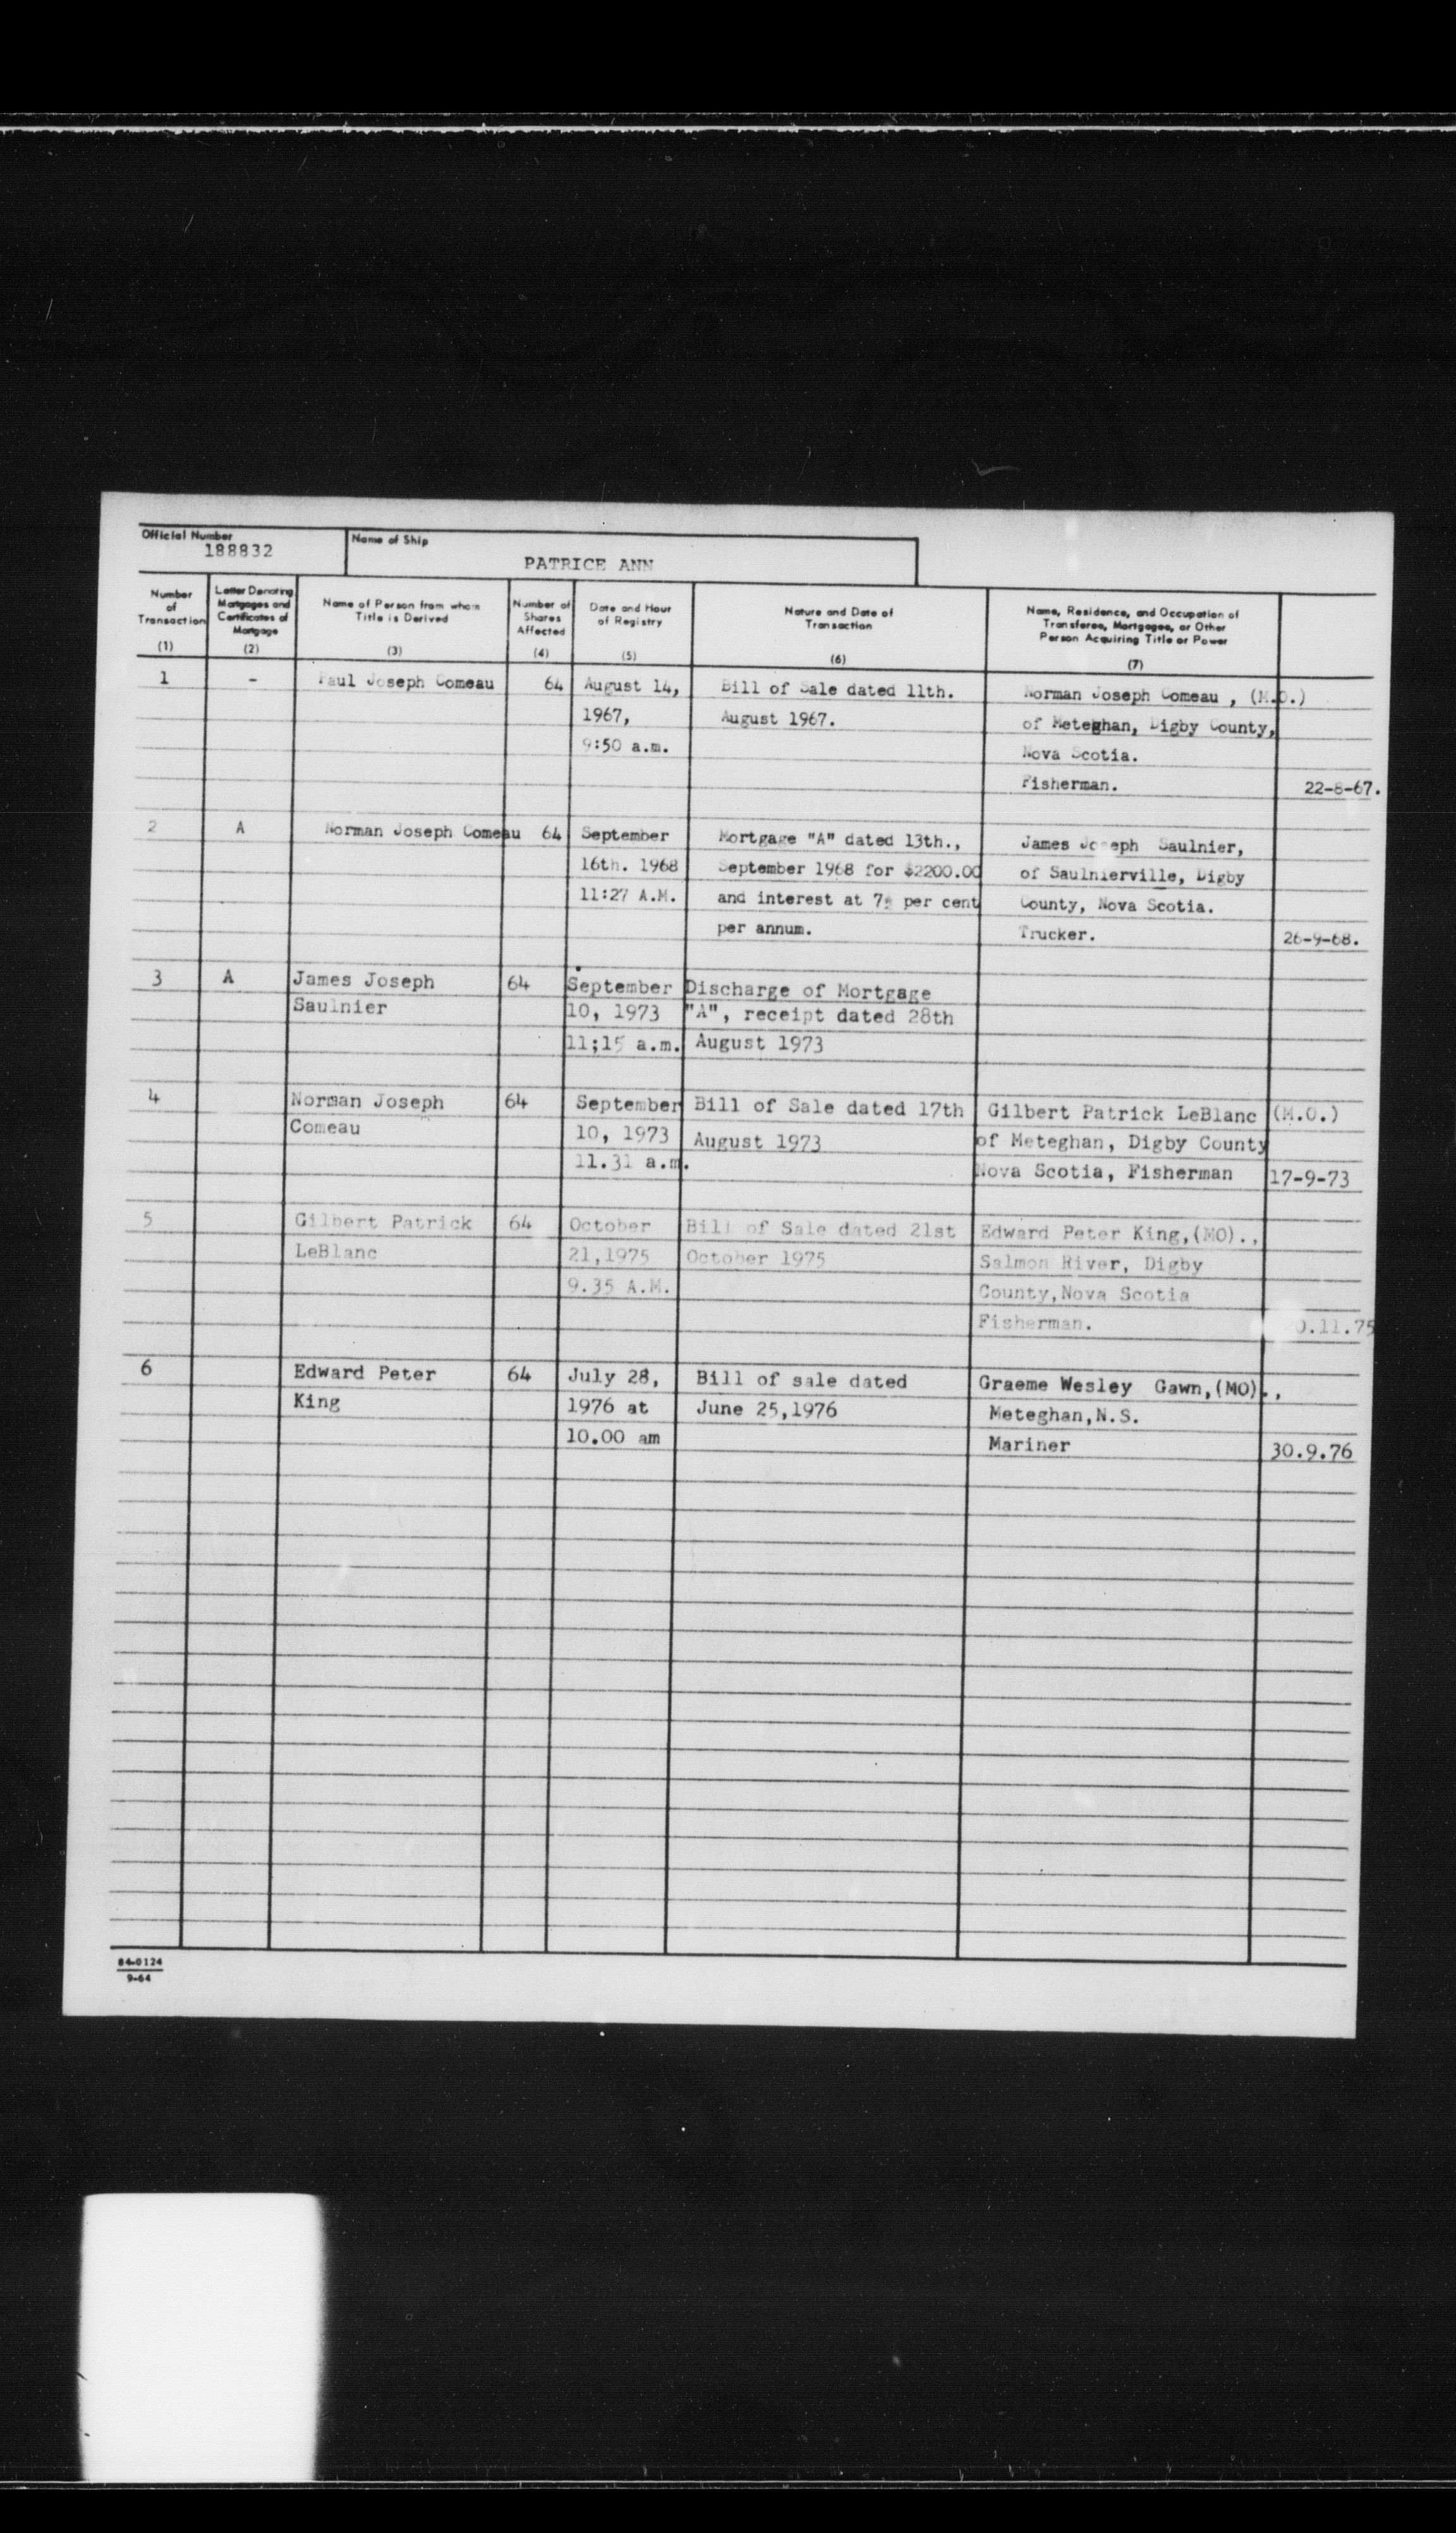 Official Number
188832
Name of Ship
PATRICE ANN
Number of Transaction (1)
Letter Denoting Mortgages and Certificates of Mortgage (2)
Name of Person from whom Title is Derived (3)
Number of Shares Affected (4)
Date and Hour of Registry (5)
Nature and Date of Transaction (6)
Name, Residence, and Occupation of Transferee, Mortgagee, or Other Person Acquiring Title or Power (7)
1 - Paul Joseph Comeau 64 August 14, Bill of Sale dated 11th. Norman Joseph Comeau , (M.O.)
1967, August 1967. of Meteghan, Digby County,
9:50 a.m. Nova Scotia.
Fisherman. 22-8-67.
2 A Norman Joseph Comeau 64 September Mortgage "A" dated 13th., James Joseph Saulnier,
16th. 1968 September 1968 for $2200.00 of Saulnierville, Digby
11:27 A.M. and interest at per cent County, Nova Scotia.
per annum. Trucker. 26-9-68.
3 A James Joseph 64 September Discharge of Mortgage
Saulnier 10, 1973 "A", receipt dated 28th
11;15 a.m. August 1973
4 Norman Joseph 64 September Bill of Sale dated 17th Gilbert Patrick LeBlanc (M.O.)
Comeau 10, 1973 August 1973 of Meteghan, Digby County
11.31 a.m. Nova Scotia, Fisherman 17-9-73
5 Gilbert Patrick 64 October Bill of Sale dated 21st Edward Peter King,(MO).,
LeBlanc 21,1975 October 1975 Salmon River, Digby
9.35 A.M. County,Nova Scotia
Fisherman.
6 Edward Peter 64 July 28, Bill of sale dated Graeme Wesley Gawn,(MO).,
King 1976 at June 25,1976 Meteghan,N.S.
10.00 am Mariner 30.9.76
84-0124
9-64